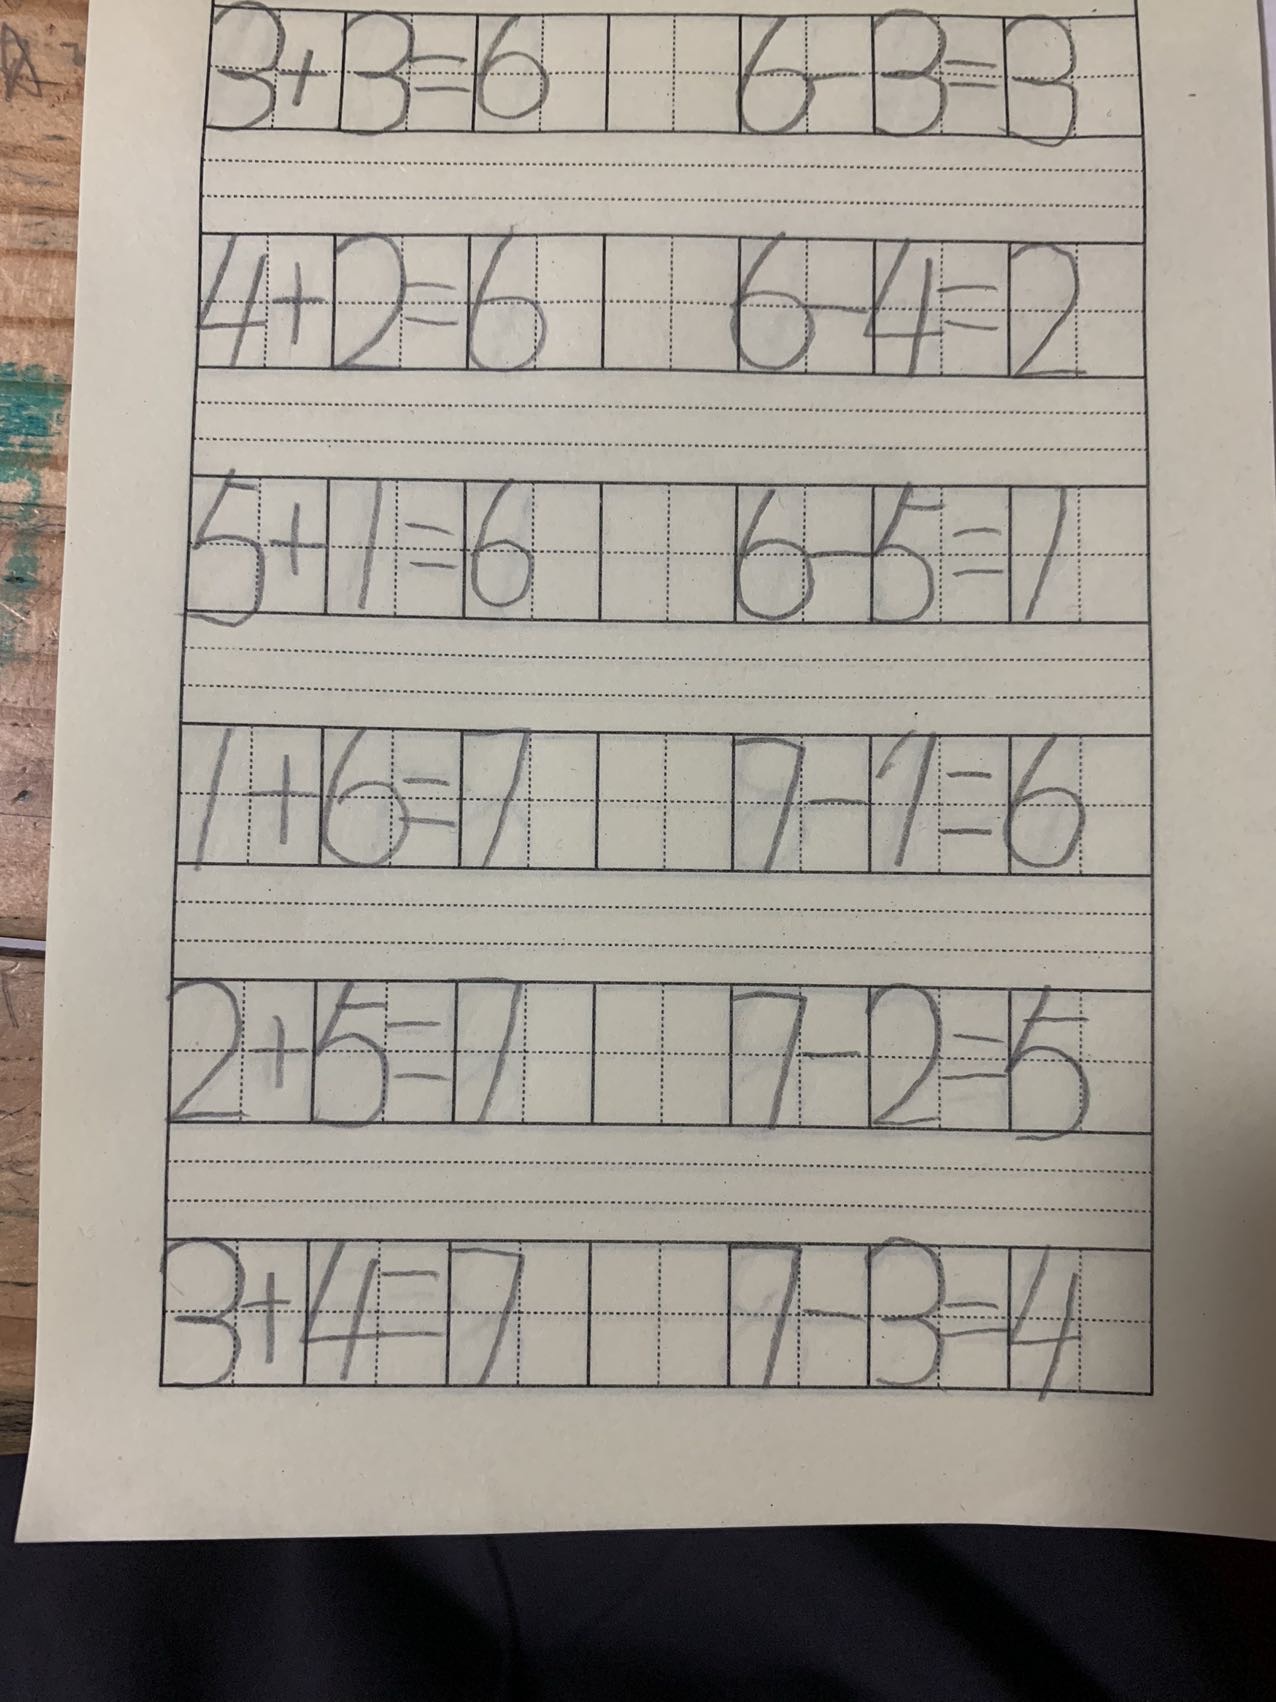 3+3=6 6-3=3
4+2=6 6-4=2
5+1=6 6-5=1
1+6=7 7-1=6
2+5=7 7-2=5
3+4=7 7-3=4